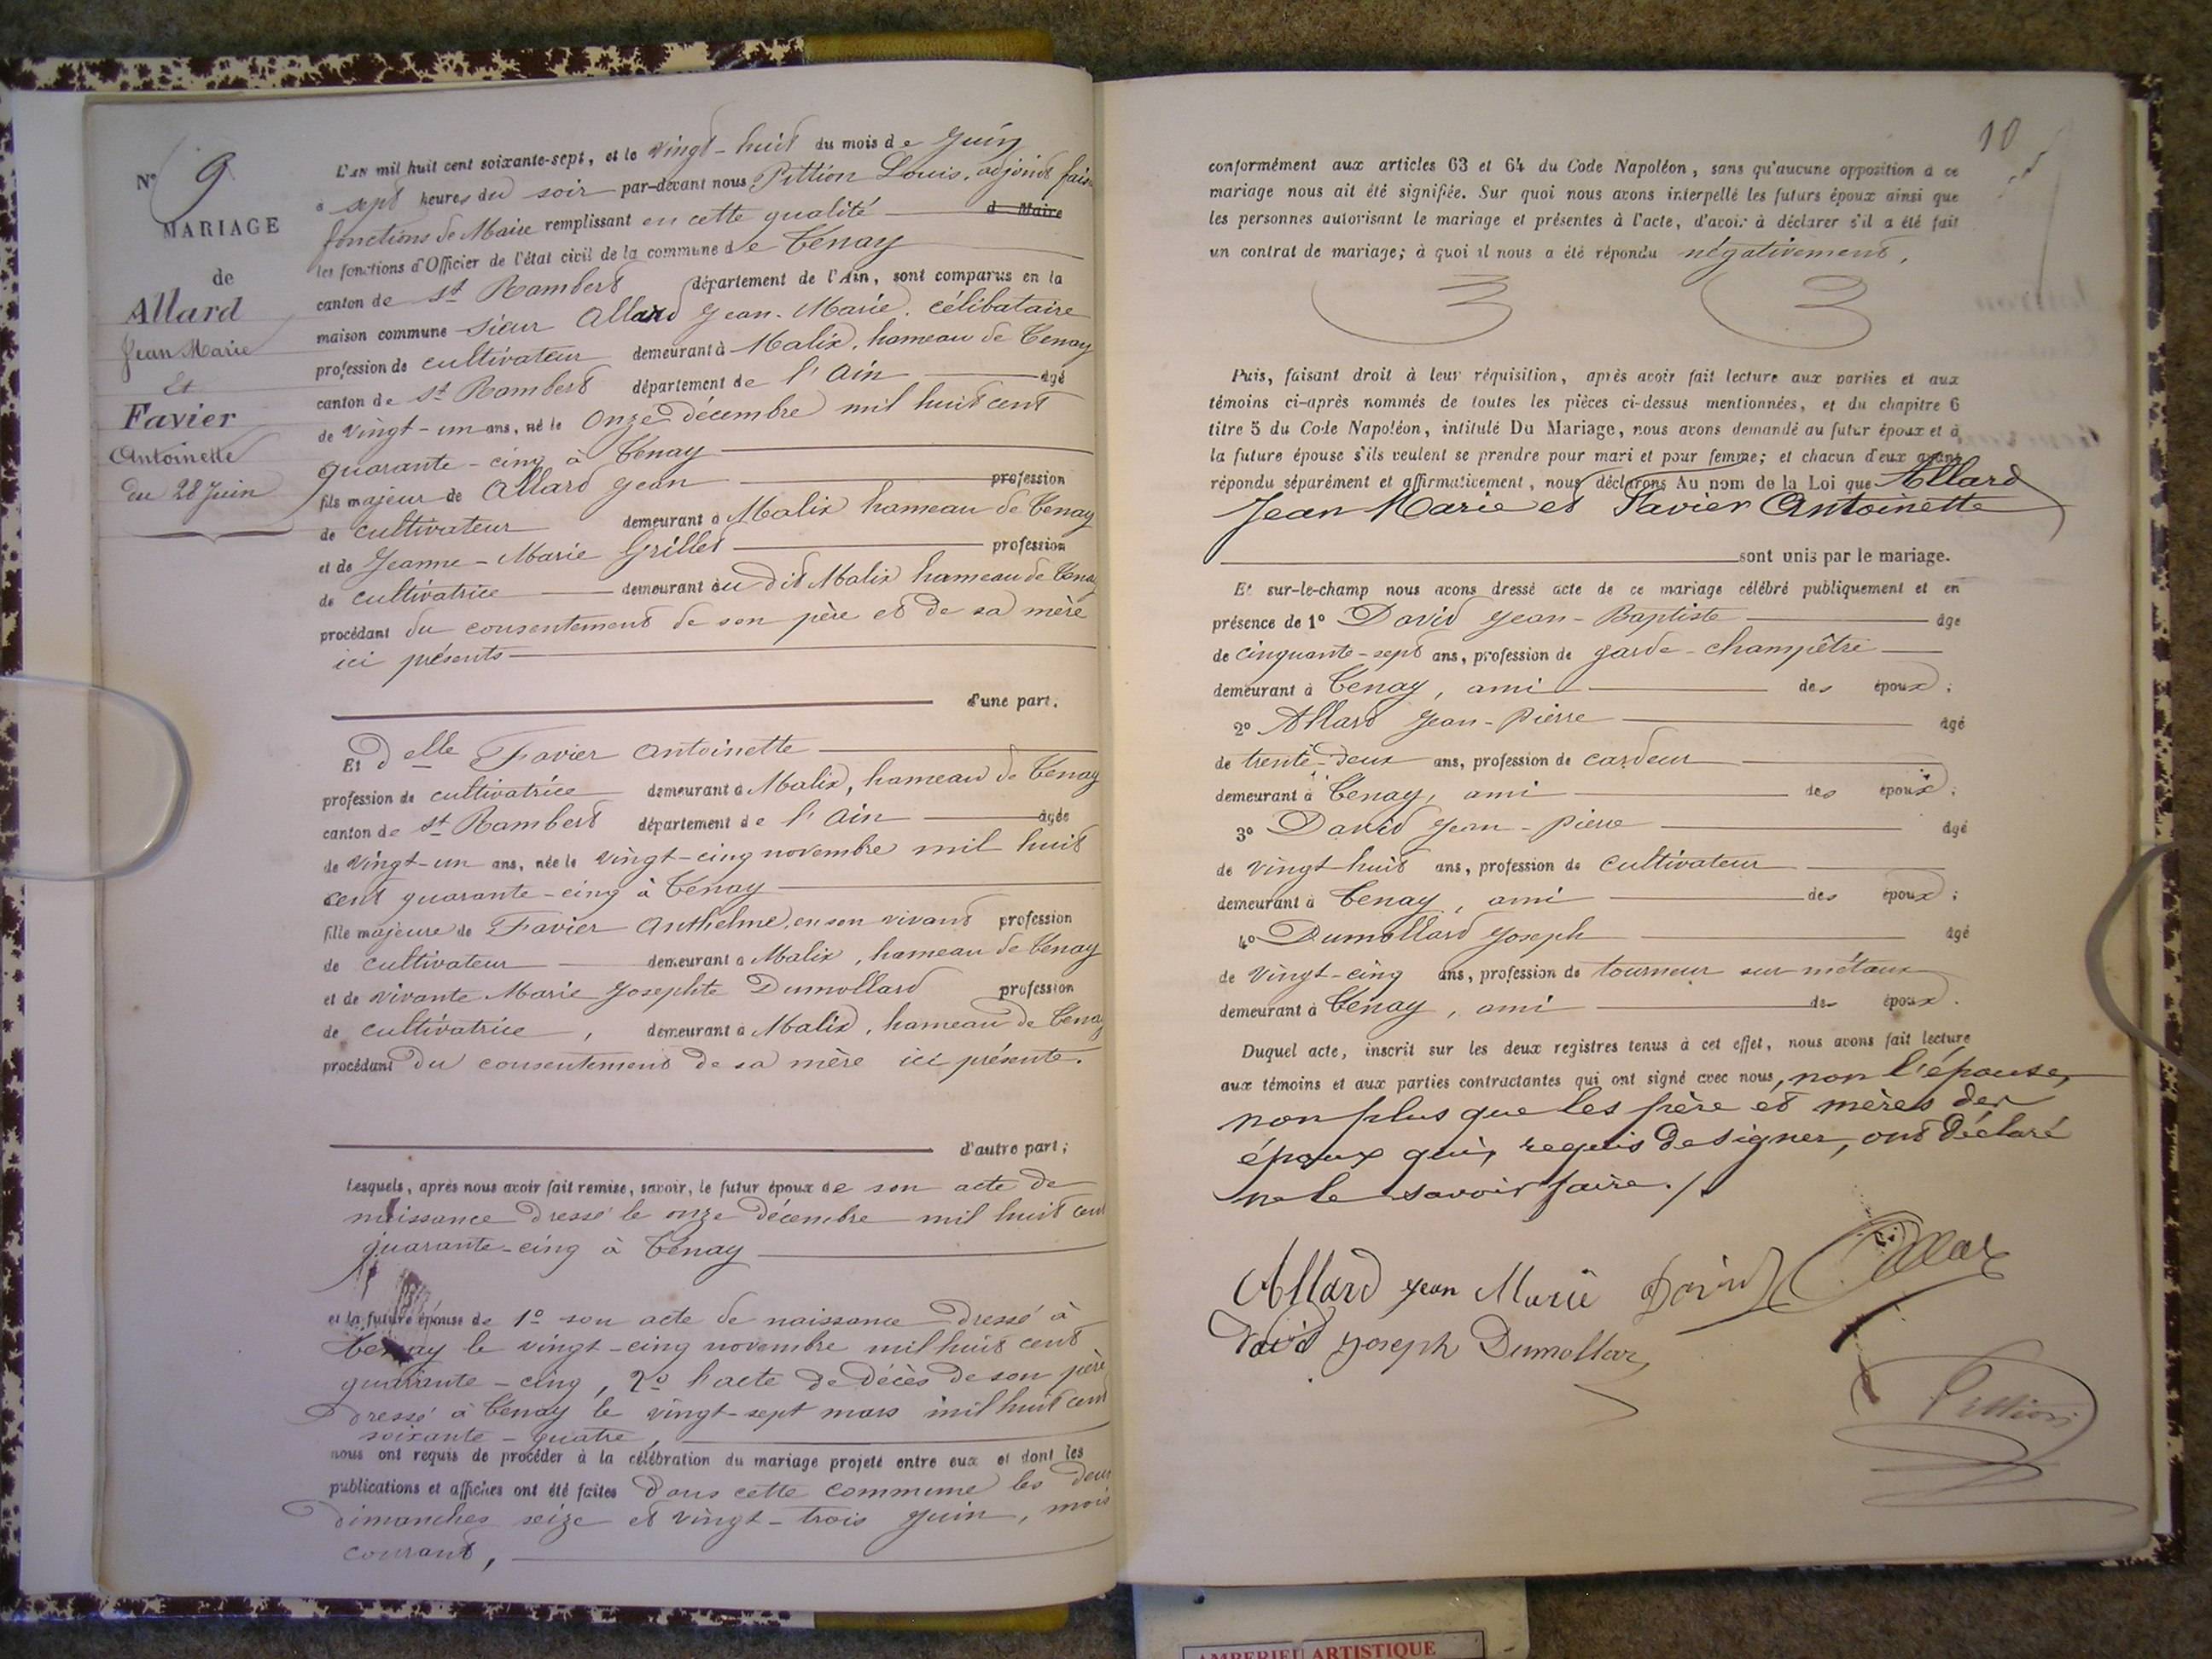 N° 9
MARIAGE
de
Allard
Jean Marie
Et
Favier
Antoinette
du 28 Juin
L'AN mil huit cent soixante-sept, et le vingt-huit du mois de Juin
à sept heures du soir par-devant nous Pittion Louis, adjoint fais
fonctions de Maire remplissant en cette qualité d Maire
les fonctions d'Officier de l'état civil de la commune de Tenay
canton de St Rambert département de l'Ain, sont comparus en la
maison commune sieur Allard Jean-Marie, célibataire
profession de cultivateur demeurant à Malix, hameau de Tenay
canton de St Rambert département de l'Ain âgé
de vingt-un ans, né le onze décembre mil huit cent
quarante-cinq à Tenay
fils majeur de Allard Jean profession
de cultivateur demeurant à Malix hameau de Tenay
et de Jeanne-Marie Grillet profession
de cultivatrice demeurant au dit Malix hameau de Tenay
procédant du consentement de son père et de sa mère
ici présents
d'une part.
Et Delle Favier Antoinette
profession de cultivatrice demeurant à Malix, hameau de Tenay
canton de St Rambert département de l'Ain âgée
de vingt-un ans, née le vingt-cinq novembre mil huit
cent quarante-cinq à Tenay
fille majeure de Favier Anthelme, en son vivant profession
de cultivateur demeurant à Malix, hameau de Tenay
et de vivante Marie Josephte Dumollard profession
de cultivatrice, demeurant à Malix, hameau de Tenay
procédant du consentement de sa mère ici présente.
d'autre part;
Lesquels, après nous avoir fait remise, savoir, le futur époux de son acte de
naissance dressé le onze décembre mil huit cent
quarante-cinq à Tenay
et la future épouse de 1° son acte de naissance dressé à
Tenay le vingt-cinq novembre mil huit cent
quarante-cinq, 2° l'acte de décès de son père
dressé à Tenay le vingt-sept mars mil huit cent
soixante-quatre,
nous ont requis de procéder à la célébration du mariage projeté entre eux et dont les
publications et affiches ont été faites dans cette commune les deux
dimanches seize et vingt-trois Juin, mois
courant,
10
conformément aux articles 63 et 64 du Code Napoléon, sans qu'aucune opposition à ce
mariage nous ait été signifiée. Sur quoi nous avons interpellé les futurs époux ainsi que
les personnes autorisant le mariage et présentes à l'acte, d'avoir à déclarer s'il a été fait
un contrat de mariage; à quoi il nous a été répondu négativement.
Puis, faisant droit à leur réquisition, après avoir fait lecture aux parties et aux
témoins ci-après nommés de toutes les pièces ci-dessus mentionnées, et du chapitre 6
titre 5 du Code Napoléon, intitulé Du Mariage, nous avons demandé au futur époux et à
la future épouse s'ils veulent se prendre pour mari et pour femme; et chacun d'eux ayant
répondu séparément et affirmativement, nous déclarons Au nom de la Loi que Allard
Jean Marie et Favier Antoinette
sont unis par le mariage.
Et sur-le-champ nous avons dressé acte de ce mariage célébré publiquement et en
présence de 1° David Jean-Baptiste âgé
de cinquante-sept ans, profession de garde-champêtre
demeurant à Tenay, ami des époux;
2° Allard Jean-Pierre âgé
de trente-deux ans, profession de cardeur
demeurant à Tenay, ami des époux;
3° David Jean-Pierre âgé
de vingt-huit ans, profession de cultivateur
demeurant à Tenay, ami des époux;
4° Dumollard Joseph âgé
de vingt-cinq ans, profession de tourneur sur métaux
demeurant à Tenay, ami des époux.
Duquel acte, inscrit sur les deux registres tenus à cet effet, nous avons fait lecture
aux témoins et aux parties contractantes qui ont signé avec nous, non l'épouse,
non plus que les père et mères des
époux qui, requis de signer, ont déclaré
ne le savoir faire./.
Allard Jean Marie David Allard
David Joseph Dumollard
Pittion
AMBERIEU ARTISTIQUE